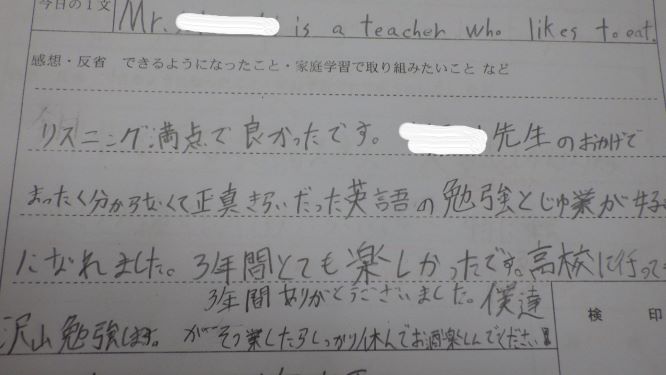 今日の1文 Mr. is a teacher who likes to eat.
感想・反省 できるようになったこと・家庭学習で取り組みたいこと など
リスニング満点で良かったです。 先生のおかげで
まったく分からなくて正真きらいだった英語の勉強とじゅ業が好き
になれました。3年間とても楽しかったです。高校に行って
3年間ありがとうございました。僕達
沢山勉強します。 がそつ業したらしっかり休んでお酒楽しんでください!
検 印